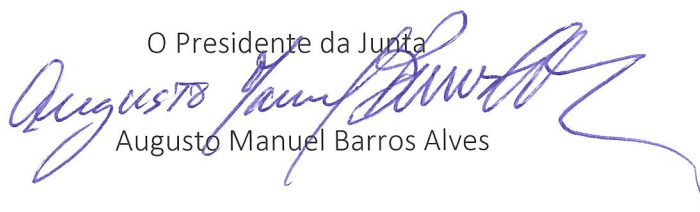 O Presidente da Junta
Augusto Manuel Barros Alves
Augusto Manuel Barros Alves